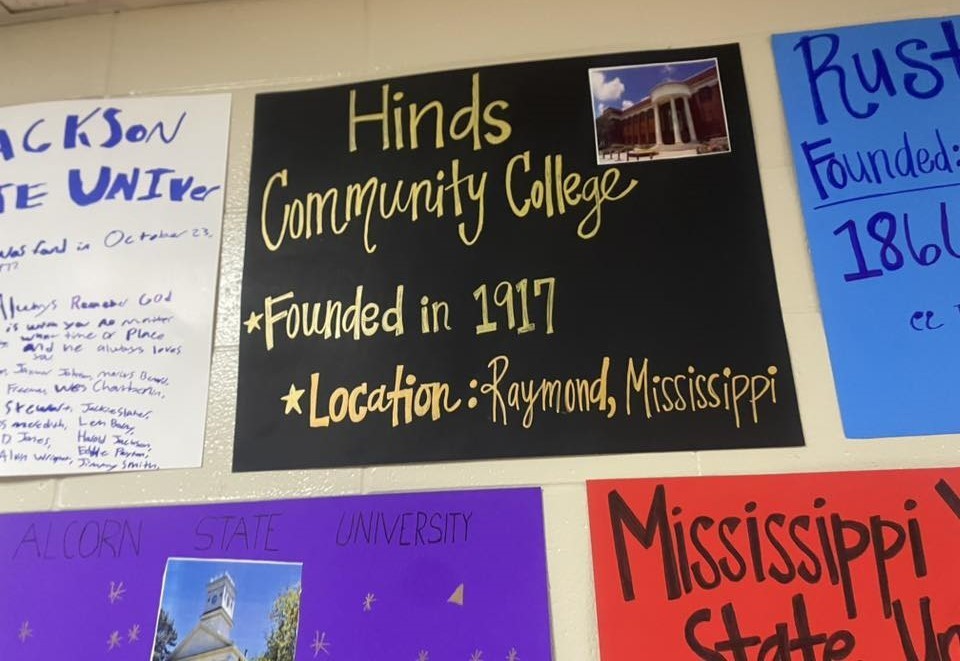 ACKSON
TE UNIVer
was fond in October 23,
Always Remember God
is with you no matter
what time or Place
and he always loves
you
Freeman, Wes Chamberlin,
Stewart, Jackie Slater,
Len Barney
D Jones, Harold Jackson,
Eddie Payton,
Jimmy Smith,
Hinds
Community College
Founded in 1917
Location: Raymond, Mississippi
Rust
Founded:
1866
ALCORN STATE UNIVERSITY
Mississippi V
State Un